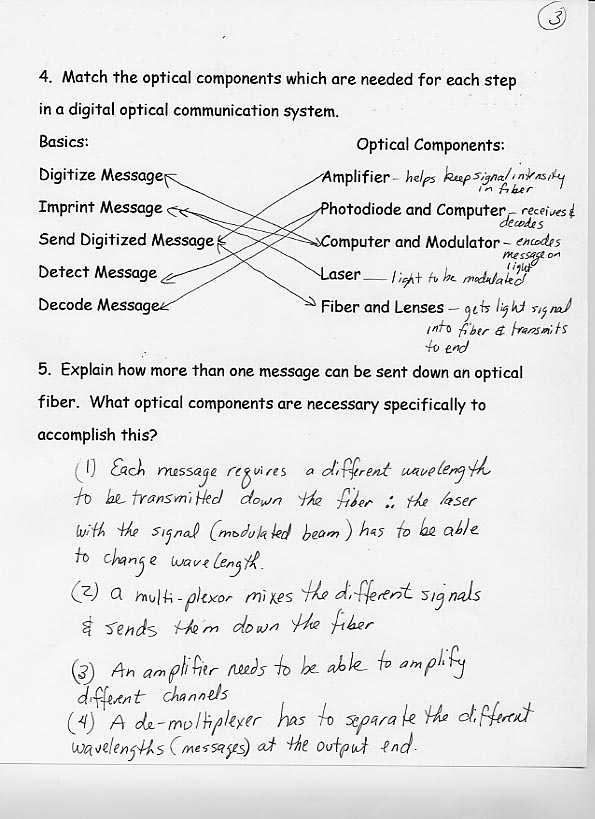 3
4. Match the optical components which are needed for each step
in a digital optical communication system.
Basics:
Optical Components:
Digitize Message
Amplifier - helps keep signal intensity
in fiber
Imprint Message
Photodiode and Computer - receives &
decodes
Send Digitized Message
Computer and Modulator - encodes
message on
light
Detect Message
Laser — light to be modulated
Decode Message
Fiber and Lenses - gets light signal
into fiber & transmits
to end
5. Explain how more than one message can be sent down an optical
fiber. What optical components are necessary specifically to
accomplish this?
(1) Each message requires a different wavelength
to be transmitted down the fiber ∴ the laser
with the signal (modulated beam) has to be able
to change wavelength.
(2) a multi-plexor mixes the different signals
& sends them down the fiber
(3) An amplifier needs to be able to amplify
different channels
(4) A de-multiplexer has to separate the different
wavelengths (messages) at the output end.